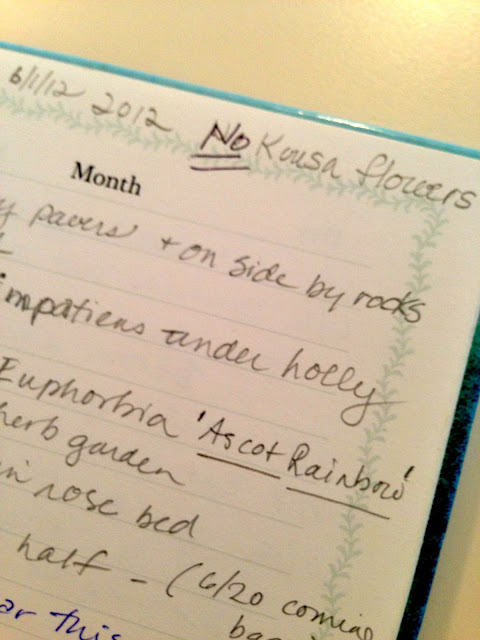 6/1/12 2012 No Kousa flowers
Month
y pavers + on side by rocks
impatiens under holly
Euphorbia 'Ascot Rainbow'
herb garden
in rose bed
half - (6/20 coming
ar this